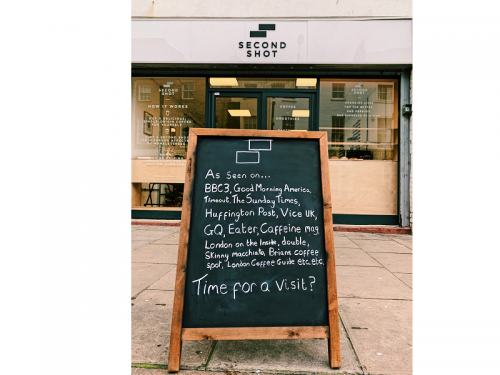 SECOND
SHOT
SECOND
SHOT
HOW IT WORKS
COFFEE
SMOOTHIES
SECOND
SHOT
As seen on...
BBC3, Good Morning America,
Timeout, The Sunday Times,
Huffington Post, Vice UK,
GQ, Eater, Caffeine mag
London on the Inside, double,
Skinny macchiato, Brians coffee
spot, London Coffee Guide etc.etc,
Time for a visit?